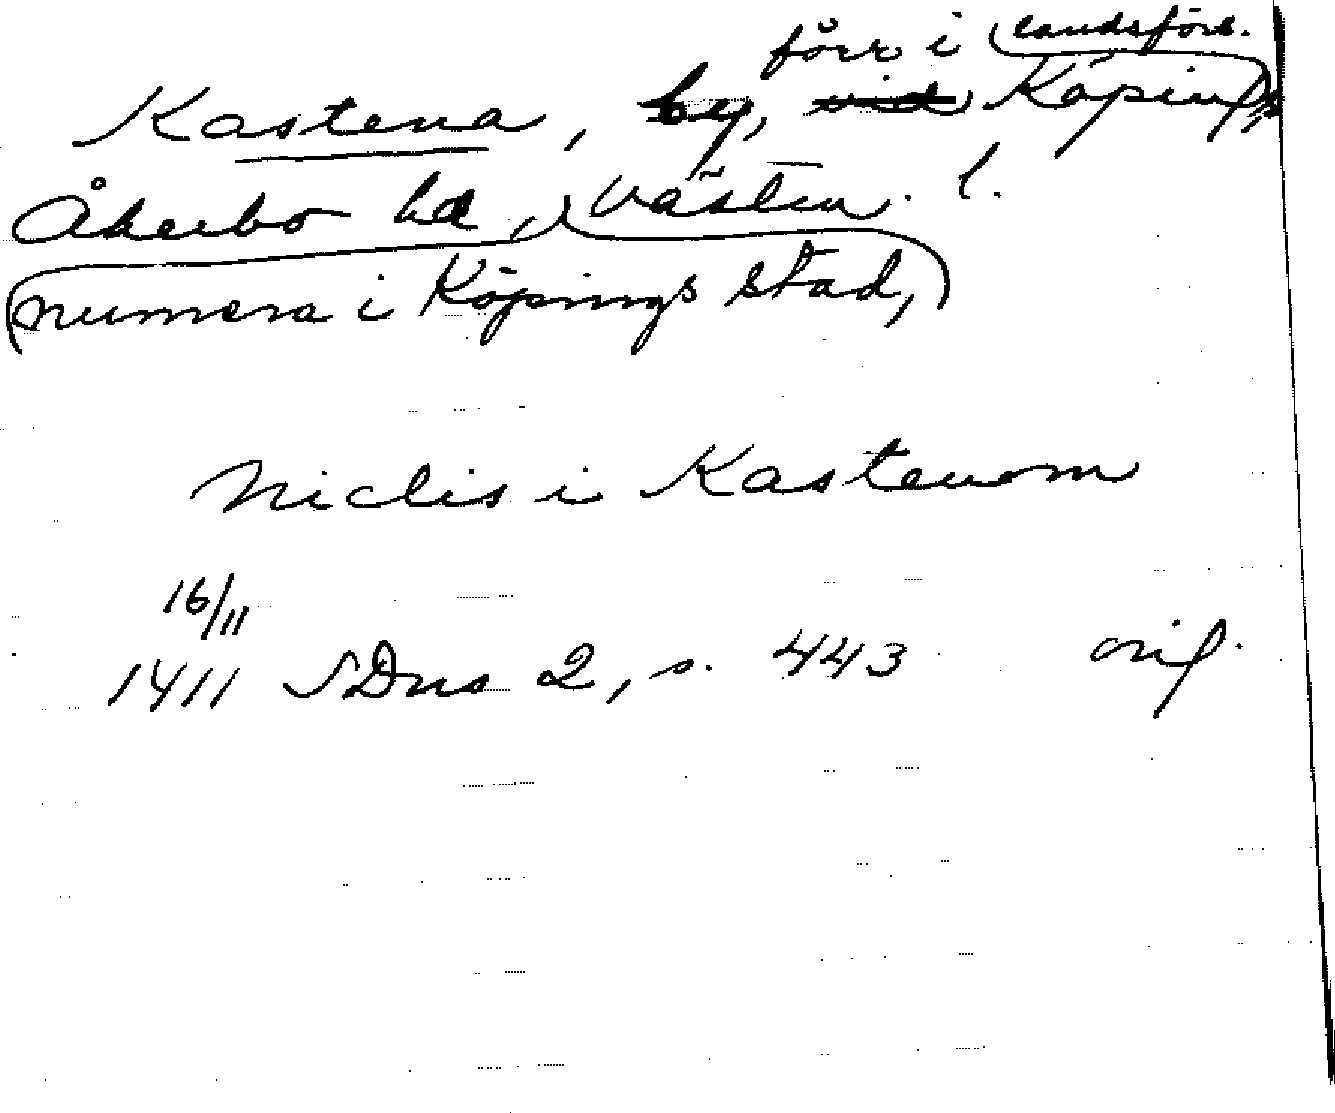 förr i landsförs.
Kastena, by, vid Köpings
Åkerbo hd, Västm. l.
numera i Köpings stad,
Niclis i Kastenom
16/11
1411 SDns 2, s. 443 orig.